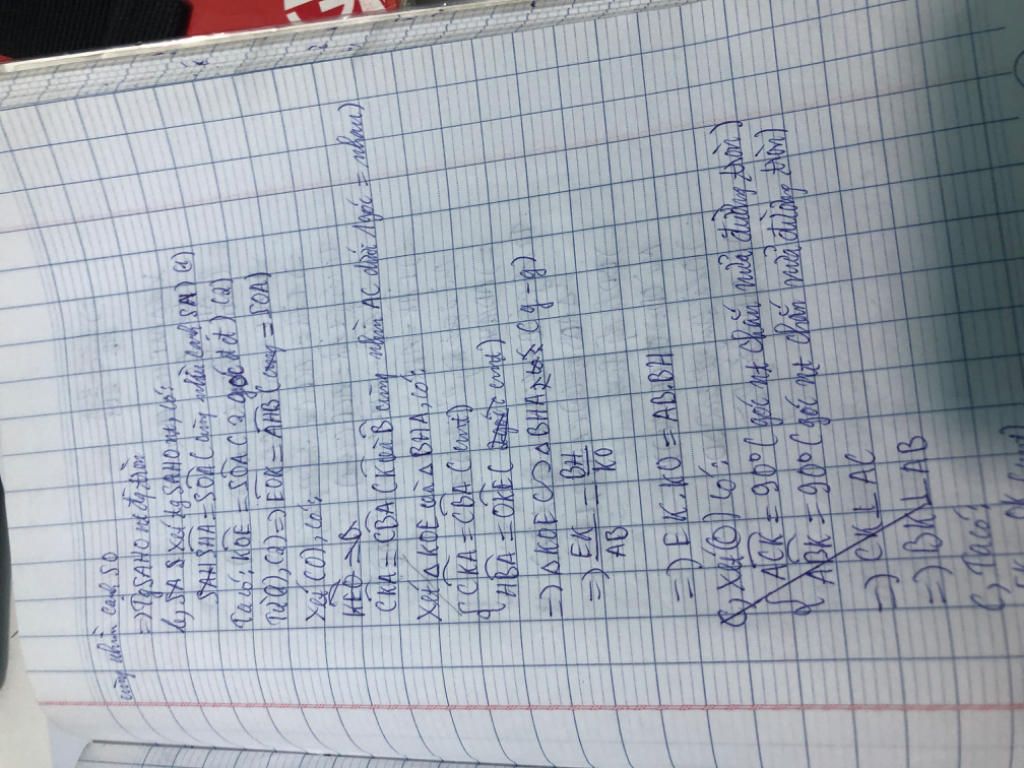 cùng nhìn cạnh SO
=> Tg SAHO nt đg tròn
b, Xét tg SAHO nt, có:
SHA = SOA (cùng nhìn cạnh SA) (1)
Ta có: KOE = SOA (2 góc đđ) (2)
Từ (1), (2) => EOK = AHB (cùng = SOA)
Xét (O), có:
CKA = CBA (K và B cùng nhìn AC dưới 1 góc = nhau)
Xét △KOE và △BHA, có:
{ CKA = CBA (cmt)
HBA = OKE (cmt)
=> △KOE ∽ △BHA (g-g)
=> EK/AB = BH/KO
=> EK.KO = AB.BH
c, Xét (O) có:
{ ACK = 90° (góc nt chắn nửa đường tròn)
ABK = 90° (góc nt chắn nửa đường tròn)
=> CK ⊥ AC
=> BK ⊥ AB
c, Ta có: